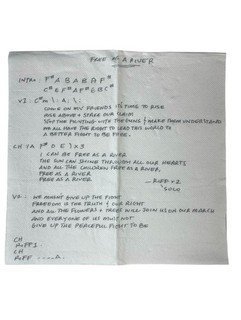 FREE AS A RIVER
INTRO: F# A B A B A F#
C# E F# A F# E B C#
V1: C#m \: A :\
COME ON MY FRIENDS IT'S TIME TO RISE
RISE ABOVE + SHARE OUR
STOP THE FIGHTING WITH THE GUNS & MAKE THEM UNDERSTAND
WE ALL HAVE THE RIGHT TO LEAD THIS WORLD TO
A BETTER FIGHT TO BE FREE.
CH (A F# D E) x3
I CAN BE FREE AS A RIVER
THE SUN CAN SHINE THROUGH ALL OUR HEARTS
AND ALL THE CHILDREN FREE AS A RIVER,
FREE AS A RIVER
FREE AS A RIVER
RIFF x2
SOLO
V2: WE MUSNT GIVE UP THE FIGHT
FREEDOM IS THE TRUTH & OUR RIGHT
AND ALL THE FLOWERS + TREES WILL JOIN US ON OUR MARCH
AND EVERYONE OF US MUST NOT
GIVE UP THE PEACEFUL FIGHT TO BE
CH
RIFF
CH
RIFF ..... A.